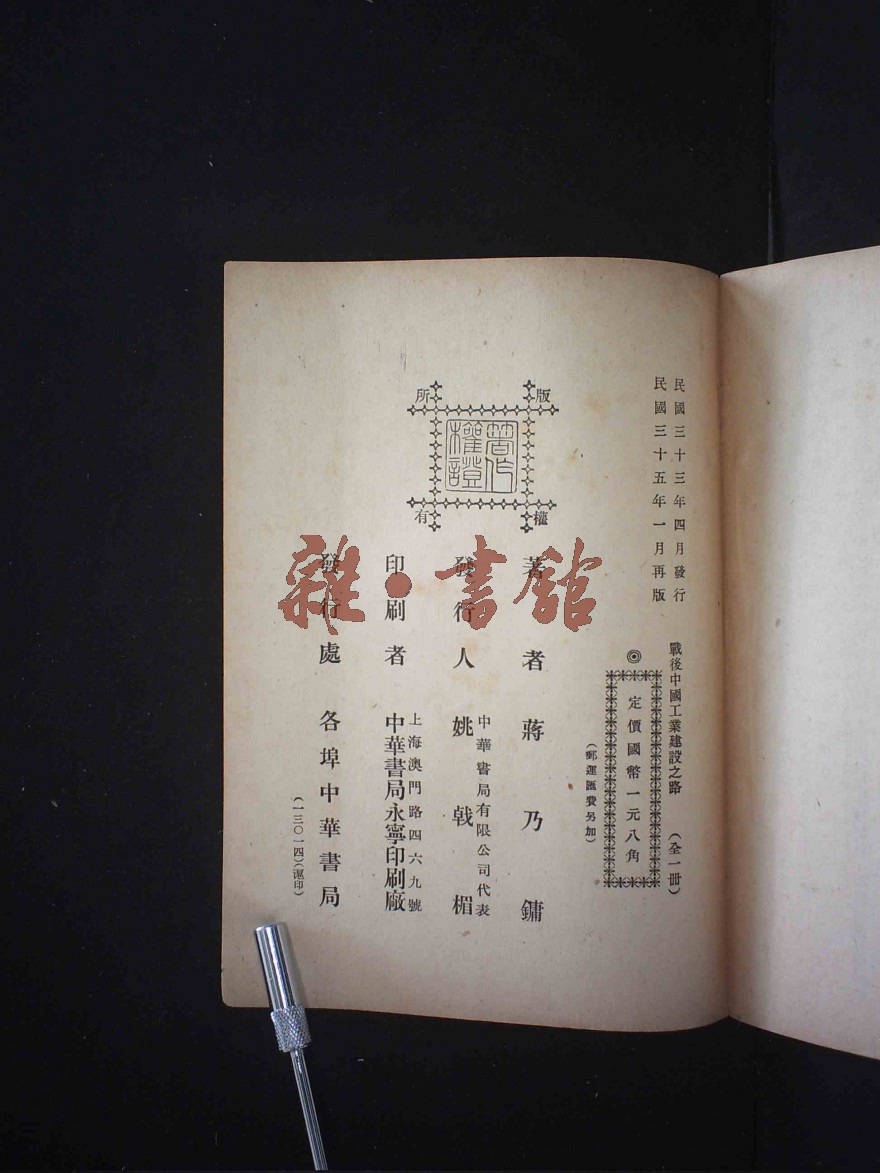 民國三十三年四月發行
民國三十五年一月再版
戰後中國工業建設之路（全一冊）
◎定價國幣一元八角
（郵運匯費另加）
版權所有
著作權證
著者 蔣乃鏞
中華書局有限公司代表
發行人 姚戟楣
上海澳門路四六九號
印刷者 中華書局永寧印刷廠
發行處 各埠中華書局
（一三〇一四）（滬印）
雜·書館